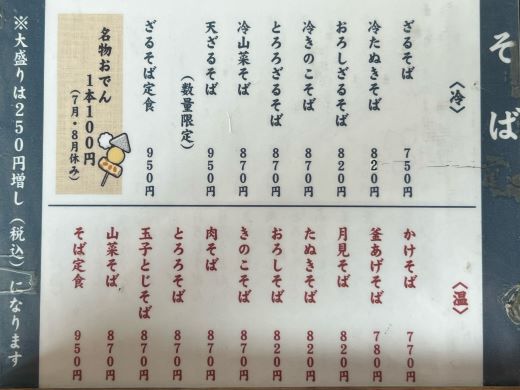 そば
〈冷〉
ざるそば 750円
冷たぬきそば 820円
おろしざるそば 820円
冷きのこそば 870円
とろろざるそば 870円
冷山菜そば 870円
天ざるそば 950円
（数量限定）
ざるそば定食 950円
名物おでん
1本100円
（7月・8月休み）
〈温〉
かけそば 770円
釜あげそば 780円
月見そば 820円
たぬきそば 820円
おろしそば 820円
きのこそば 870円
肉そば 870円
とろろそば 870円
玉子とじそば 870円
山菜そば 870円
そば定食 950円
※大盛りは250円増し（税込）になります